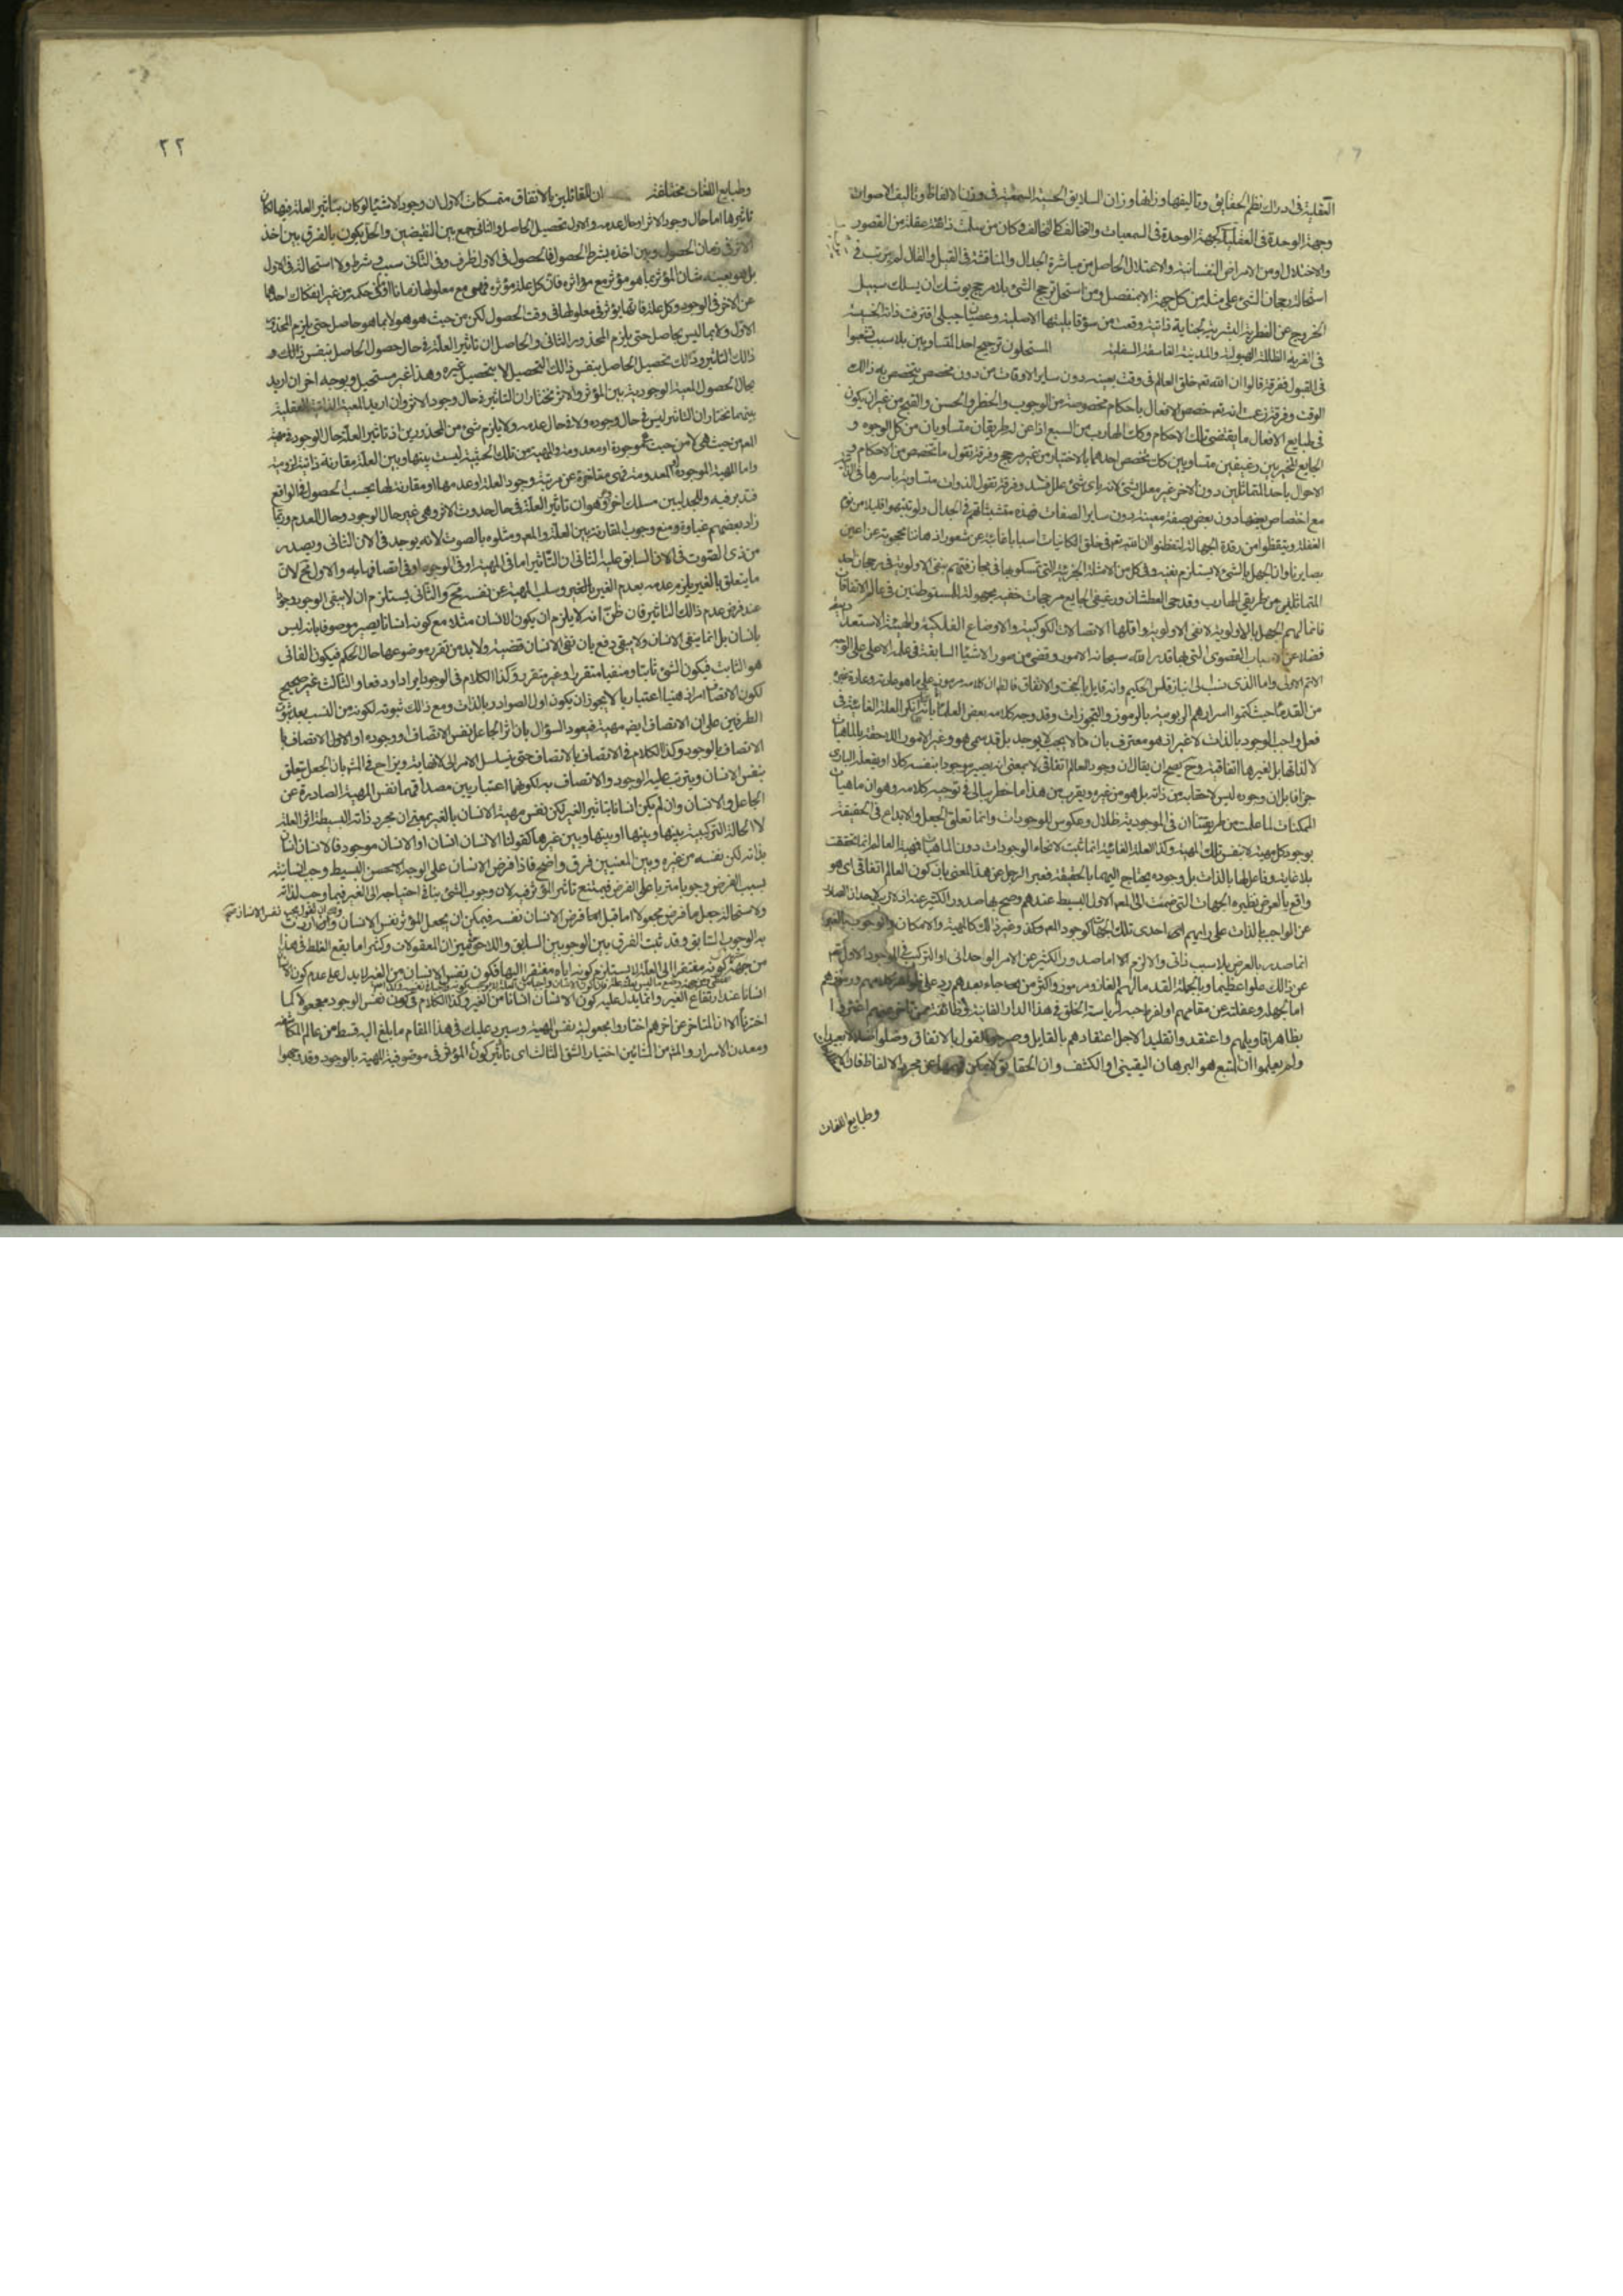 العقلية فى ادراك نظم الحقايق وتاليفها وزانها وزان السلايق الحسية السمعية فى وزن الالفاظ وتاليف الاصوات
وجهة الوحدة فى العقليات كجهة الوحدة فى السمعيات والتخالف كالتخالف فكان من سلك ذائقة عقله من القصور
والاختلال او من الامراض النفسانية والاعتلال الحاصل من مباشرة الجدال والمناقشة فى القيل والقال لم يرتب فى
استحالة رجحان الشئ على مثله من كل جهة الا بمنفصل ومن استحل ترجح الشئ بلا مرجح يوشك ان يسلك سبيل
الخروج عن الفطرة البشرية لخباثة ذاتية وقعت من سوء قابليتها الاصلية وعصيان جبلى اقترفت ذاته الخبيثة
فى القرية الظالمة الهيولية والمدينة الفاسقة السفلية المستحلون ترجيح احد المتساويين بلا سبب تشعبوا
فى القول ففرقة قالوا ان الله تعه خلق العالم فى وقت بعينه دون ساير الاوقات من دون مخصص يتخصص به ذالك
الوقت وفرقة زعمت انه تعه خصص الافعال باحكام مخصوصة من الوجوب والحظر والحسن والقبح من غير ان يكون
فى طبايع الافعال ما يقتضى تلك الاحكام وكك الهارب من السبع اذا عن له طريقان متساويان من كل الوجوه و
الجايع المخير بين رغيفين متساويين كك يخصص احدهما بالاختيار من غير مرجح وفرقة تقول ما تخصص من الاحكام و
الاحوال باحد المتماثلين دون الاخر غير معلل بشئ لانه باى شئ علل فسد وفرقة تقول الذوات متساوية باسرها فى الذاتية
مع اختصاص بعضها دون بعض بصفة معينة دون ساير الصفات فهذه متشبثاتهم فى الجدال ولو تنبهوا قليلا من نوم
الغفلة وتيقظوا من رقدة الجهالة لتفطنوا ان لله تعه فى خلق الكاينات اسبابا غايبة عن شعور اذهاننا محجوبة عن اعين
بصايرنا وان الجهل بالشئ لا يستلزم نفيه وفى كل من الامثلة الجزئية التى تمسكوا بها فى مجازفتهم بنفى الاولوية فى رجحان احد
المتماثلين من طريقى الهارب وقدحى العطشان ورغيفى الجايع مرجحات خفية مجهولة للمستوطنين فى عالم الاتفاقات
فانما لهم الجهل بالاولوية لا نفى الاولوية واقلها الاتصالات الكوكبية والاوضاع الفلكية والهيئة الاستعدادية
فضلا عن الاسباب القصوى التى بها قدر الله سبحانه الامور وقضى من صور الاشياء السابقة فى علمه الاعلى على الوجه
الاتم الاولى واما الذى نسب الى انباذقلس الحكيم وانه قايل بالبخت والاتفاق فالظن ان كلامه مرموز على ما هو عادته وعادة غيره
من القدماء حيث كتموا اسرارهم الربوبية بالرموز والتجوزات وقد وجه كلامه بعض العلماء بانه انكر العلة الغائية فى
فعل واجب الوجود بالذات لا غير اذ هو معترف بان ما لا يجب لا يوجد بل قد سمى هو وغيره الامور اللاحقة بالماهيات
لا لذاتها بل لغيرها اتفاقية وح يصح ان يقال ان وجود العالم اتفاقى لا بمعنى انه يصير موجودا بنفسه كلا او يفعله البارى
جزافا بل ان وجوده ليس لاحقا به من ذاته بل هو من غيره ويقرب من هذا ما خطر ببالى فى توجيه كلامه وهو ان ماهيات
الممكنات لما علمت من طريقتنا ان فى الموجودية ظلال وعكوس للوجودات وانما تعلق الجعل والابداع فى الحقيقة
بوجود كل مهية لا بنفس تلك المهية وكذا العلة الغائية انما ثبت لانحاء الوجودات دون الماهيات فمهية العالم انما تحققت
بلا غاية وفاعل لها بالذات بل وجوده يحتاج اليهما بالحقيقة فعبر الرجل عن هذا المعنى بان كون العالم اتفاقى اى هو
واقع بالعرض نظيره الجهات التى ضمت الى المعه الاول البسيط عندهم وصح بها صدور الكثير عنه
عن الواجب بالذات على رايهم اى احدى تلك الجهات كوجود المعه وكذا وغير ذلك كالمهية والامكان والوجوب بالغير
انما صدر بالعرض بلا سبب ذاتى والا لزم اما صدور الكثير عن الامر الواحدانى او التركب فى الموجود الاول تعه
عن ذالك علوا عظيما وبالجملة القدماء لهم الغاز ورموز واكثر من جاء بعدهم رد على ظواهر كلامهم ورموزهم
اما لجهله وغفلته عن مقامهم او لفرط حبه لرياسة الخلق فى هذا الدار الفانية وطائفة ممن تاخر عنهم اغتروا
بظاهر اقاويلهم واعتقدوا تقليدا لاجل اعتقادهم بالقايل وصرحوا القول بالاتفاق وضلوا ضلالا بعيدا
ولم يعلموا ان المتبع هو البرهان اليقينى او الكشف وان الحقايق لا يمكن فهمها عن مجرد الالفاظ فان
وطبايع اللغات
٢٢
وطبايع اللغات مختلفة ان للقائلين بالاتفاق متمسكات الاول ان وجود الاشياء لو كان بتاثير العلة فيها لكان
تاثيرها اما حال وجود الاثر او حال عدمه والاول تحصيل الحاصل والثانى جمع بين النقيضين والحل يكون بالفرق بين اخذ
الاثر فى زمان الحصول وبين اخذه بشرط الحصول فالحصول فى الاول ظرف وفى الثانى سبب شرط ولا استحالة فى الاول
بل هو بعينه شان المؤثر بما هو مؤثر مع مؤاثره فان كل علة مؤثرة فهى مع معلولها زمانا او فى حكمه من غير انفكاك احدهما
عن الاخر فى الوجود وكل علة فانها يؤثر فى معلولها فى وقت الحصول لكن من حيث هو هو لا بما هو حاصل حتى يلزم المحذور
الاول ولا بما ليس بحاصل حتى يلزم المحذور الثانى والحاصل ان تاثير العلة فى حال حصول الحاصل بنفس ذلك
ذالك التاثير وذلك تحصيل الحاصل بنفس ذالك التحصيل لا بتحصيل غيره وهذا غير مستحيل وبوجه اخر ان اريد
بحال الحصول المعية الوجودية بين المؤثر والاثر نختار ان التاثير فى حال وجود الاثر وان اريد المعية الذاتية العقلية
بينهما نختار ان التاثير ليس فى حال وجوده ولا فى حال عدمه ولا يلزم شئ من المحذورين اذ تاثير العلة حال الوجود فى مهية
المعه من حيث هى لا من حيث هى موجودة او معدومة والمهية من تلك الحيثية ليست بينها وبين العلة مقارنة ذاتية لزومية
واما المهية الموجودة او المعدومة فهى متاخرة عن مرتبة وجود العلة او عدمها ومقارنة لها بحسب الحصول فى الواقع
فتدبر فيه وللجدليين مسلك اخر وهو ان تاثير العلة فى حال حدوث الاثر وهى غير حال الوجود وحال العدم وربما
زاد بعضهم غباوة ومنع وجوب المقارنة بين العلة والمعه ومثلوه بالصوت لانه يوجد فى الان الثانى ويصدر
من ذى الصوت فى الان السابق عليه الثانى ان التاثير اما فى المهية او فى الوجود او فى اتصافها به والاول مح لان
ما يتعلق بالغير يلزم عدمه بعدم الغير وسلب المهية عن نفسه مح والثانى يستلزم ان لا يبقى الوجود وجودا
عند فرض عدم ذالك التاثير فان ظن انه لا يلزم ان يكون الانسان مثلا مع كونه انسانا يصير موصوفا بانه ليس
بانسان بل انما يفنى الانسان ولا يبقى دفع بان نفى الانسان قضية ولا بد من تقرر موضوعها حال الحكم فيكون الفانى
هو الثابت فيكون الشئ ثابتا ومنفيا متقررا وغير متقرر وكذا الكلام فى الوجود ايرادا ودفعا والثالث غير صحيح
لكون الاتصاف امرا ذهنيا اعتباريا لا يجوز ان يكون اول الصوادر بالذات ومع ذالك ثبوته لكونه من النسب بعد ثبوت
الطرفين على ان الاتصاف ايض مهية فيعود السؤال بان اثر الجاعل نفس الاتصاف او وجوده او الاتصاف با
الاتصاف بالوجود وكذا الكلام فى الاتصاف بالاتصاف حتى يتسلسل الامر الى لا نهاية ويزاح فى المشه بان الجعل يتعلق
بنفس الانسان ويترتب عليه الوجود والاتصاف به لكونهما اعتباريين مصداقهما نفس المهية الصادرة عن
الجاعل والانسان وان لم يكن انسانا بتاثير الغير لكن نفس مهية الانسان بالغير بمعنى ان مجرد ذاته البسيطة اثر العلة
لا الحالة التركيبية بينها وبينها او بينها وبين غيرها كقولنا الانسان انسان او الانسان موجود فالانسان انسان
بذاته لكن نفسه من غيره وبين المعنيين فرق واضح فاذا فرض الانسان على الوجه الاحسن البسيط وجب انسانيته
بسبب الفرض وجوبا مترتبا على الفرض فيمتنع تاثير المؤثر فيه لان وجوب الشئ ينافى احتياجه الى الغير فيما وجب لذاته
ولاستحالة جعل ما فرض مجعولا اما قبل فرض الانسان نفسه فيمكن ان يجعل المؤثر نفس الانسان
به الوجوب السابق وقد ثبت الفرق بين الوجوبين السابق واللاحق فى ميزان المعقولات وكثيرا ما يقع الغلط فى هذا
من جهة كونه مفتقرا الى العلة لا يستلزم كونه اياه مفتقرا اليها فكون نفس الانسان من الغير لا يدل على عدم كون الانسان
انسانا عند ارتفاع الغير وانما يدل عليه كون الانسان انسانا من الغير وكذا الكلام فى كون نفس الوجود مجعولا كما
اخترنا الا ان المتاخر عن اخرهم اختاروا مجعولية نفس المهية وسيرد عليك فى هذا المقام ما يبلغ اليه قسط من عالم المكاشفة
ومعدن الاسرار والمشه من المشائين اختيار الشق الثالث اى تاثير كون المؤثر فى موصوفية المهية بالوجود وقد وجهوا